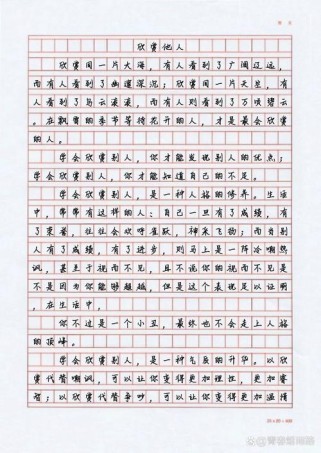 欣赏他人
欣赏同一片大海，有人看到了广阔辽远，
而有人看到了幽邃深沉；欣赏同一片天空，有
人看到了乌云滚滚，而有人则看到了万顷碧云
。在飘雪的季节等待花开的人，才是最会欣赏
的人。
学会欣赏别人，你才能发现别人的优点；
学会欣赏别人，你才能知道自己的不足。
学会欣赏别人，是一种人格的修养。生活
中，常常有这样的人：自己一旦有了成绩，有
了荣誉，往往会欢呼雀跃，神采飞扬；而当别
人有了成绩，有了进步，则马上是一阵冷嘲热
讽，甚至于视而不见，且不说你的视而不见是
不是因为你能够超越，但是这个最也足以证明
，在生活中，
你不过是一个小丑，最终也不会走上人格
的顶峰。
学会欣赏别人，是一种气质的升华。以欣
赏代替嘲讽，可以让你变得更加理性，更加睿
智；以欣赏代替争吵，可以让你变得更加温情
20×20=400